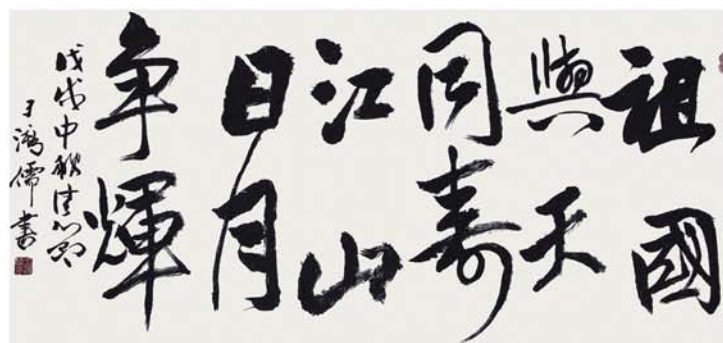 祖國
與天
同壽
江山
日月
争輝
戊戌中秋佳節
于鴻儒書